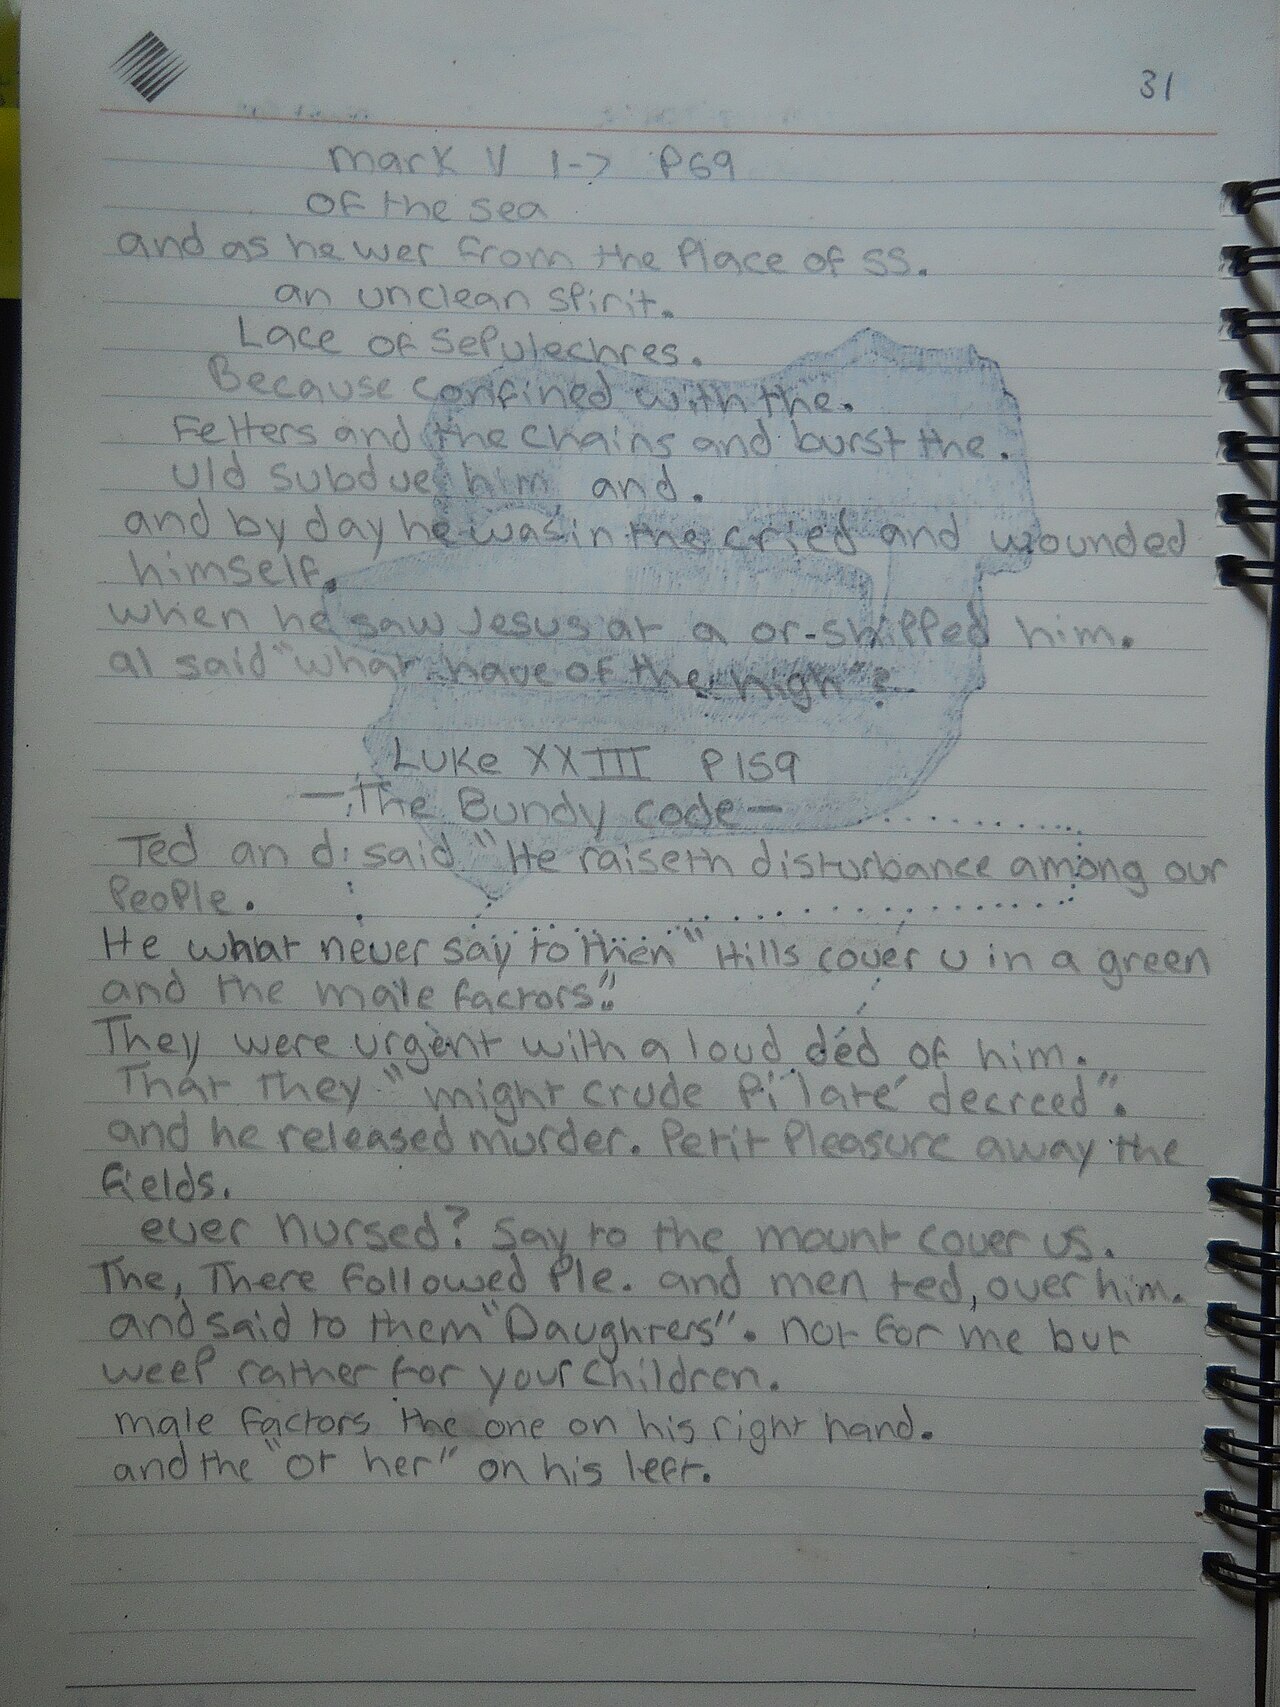 31
Mark V 1-> P69
of the sea
and as he wer from the Place of ss.
an unclean spirit.
Lace of Sepulechres.
Because confined with the.
Fetters and the chains and burst the.
uld subdue him and.
and by day he was in the cried and wounded
himself.
when he saw Jesus at a or-shipped him.
al said "what have of the high"?
Luke XXIII P159
—The Bundy code—
Ted an di said "He raiseth disturbance among our
People.
He what never say to then "Hills cover u in a green
and the male factors".
They were urgent with a loud ded of him.
That they "might crude Pi'late' decreed".
and he released murder. Petit Pleasure away the
fields.
ever nursed? Say to the mount cover us.
The, There followed Ple. and men ted, over him.
and said to them "Daughters". not for me but
weep rather for your Children.
male factors the one on his right hand.
and the "ot her" on his left.